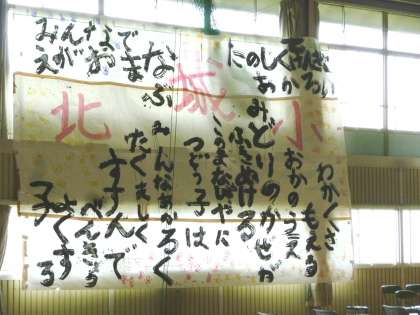 たのしく
あかるい
みんなで
えがおで まなぶ
北城小
わかくさ
もえる
おかのうえ
みどりのかぜが
ふきぬける
このまなびやに
つどう子は
みんなあかるく
たくましく
すすんで
べんきょう
よくする
子